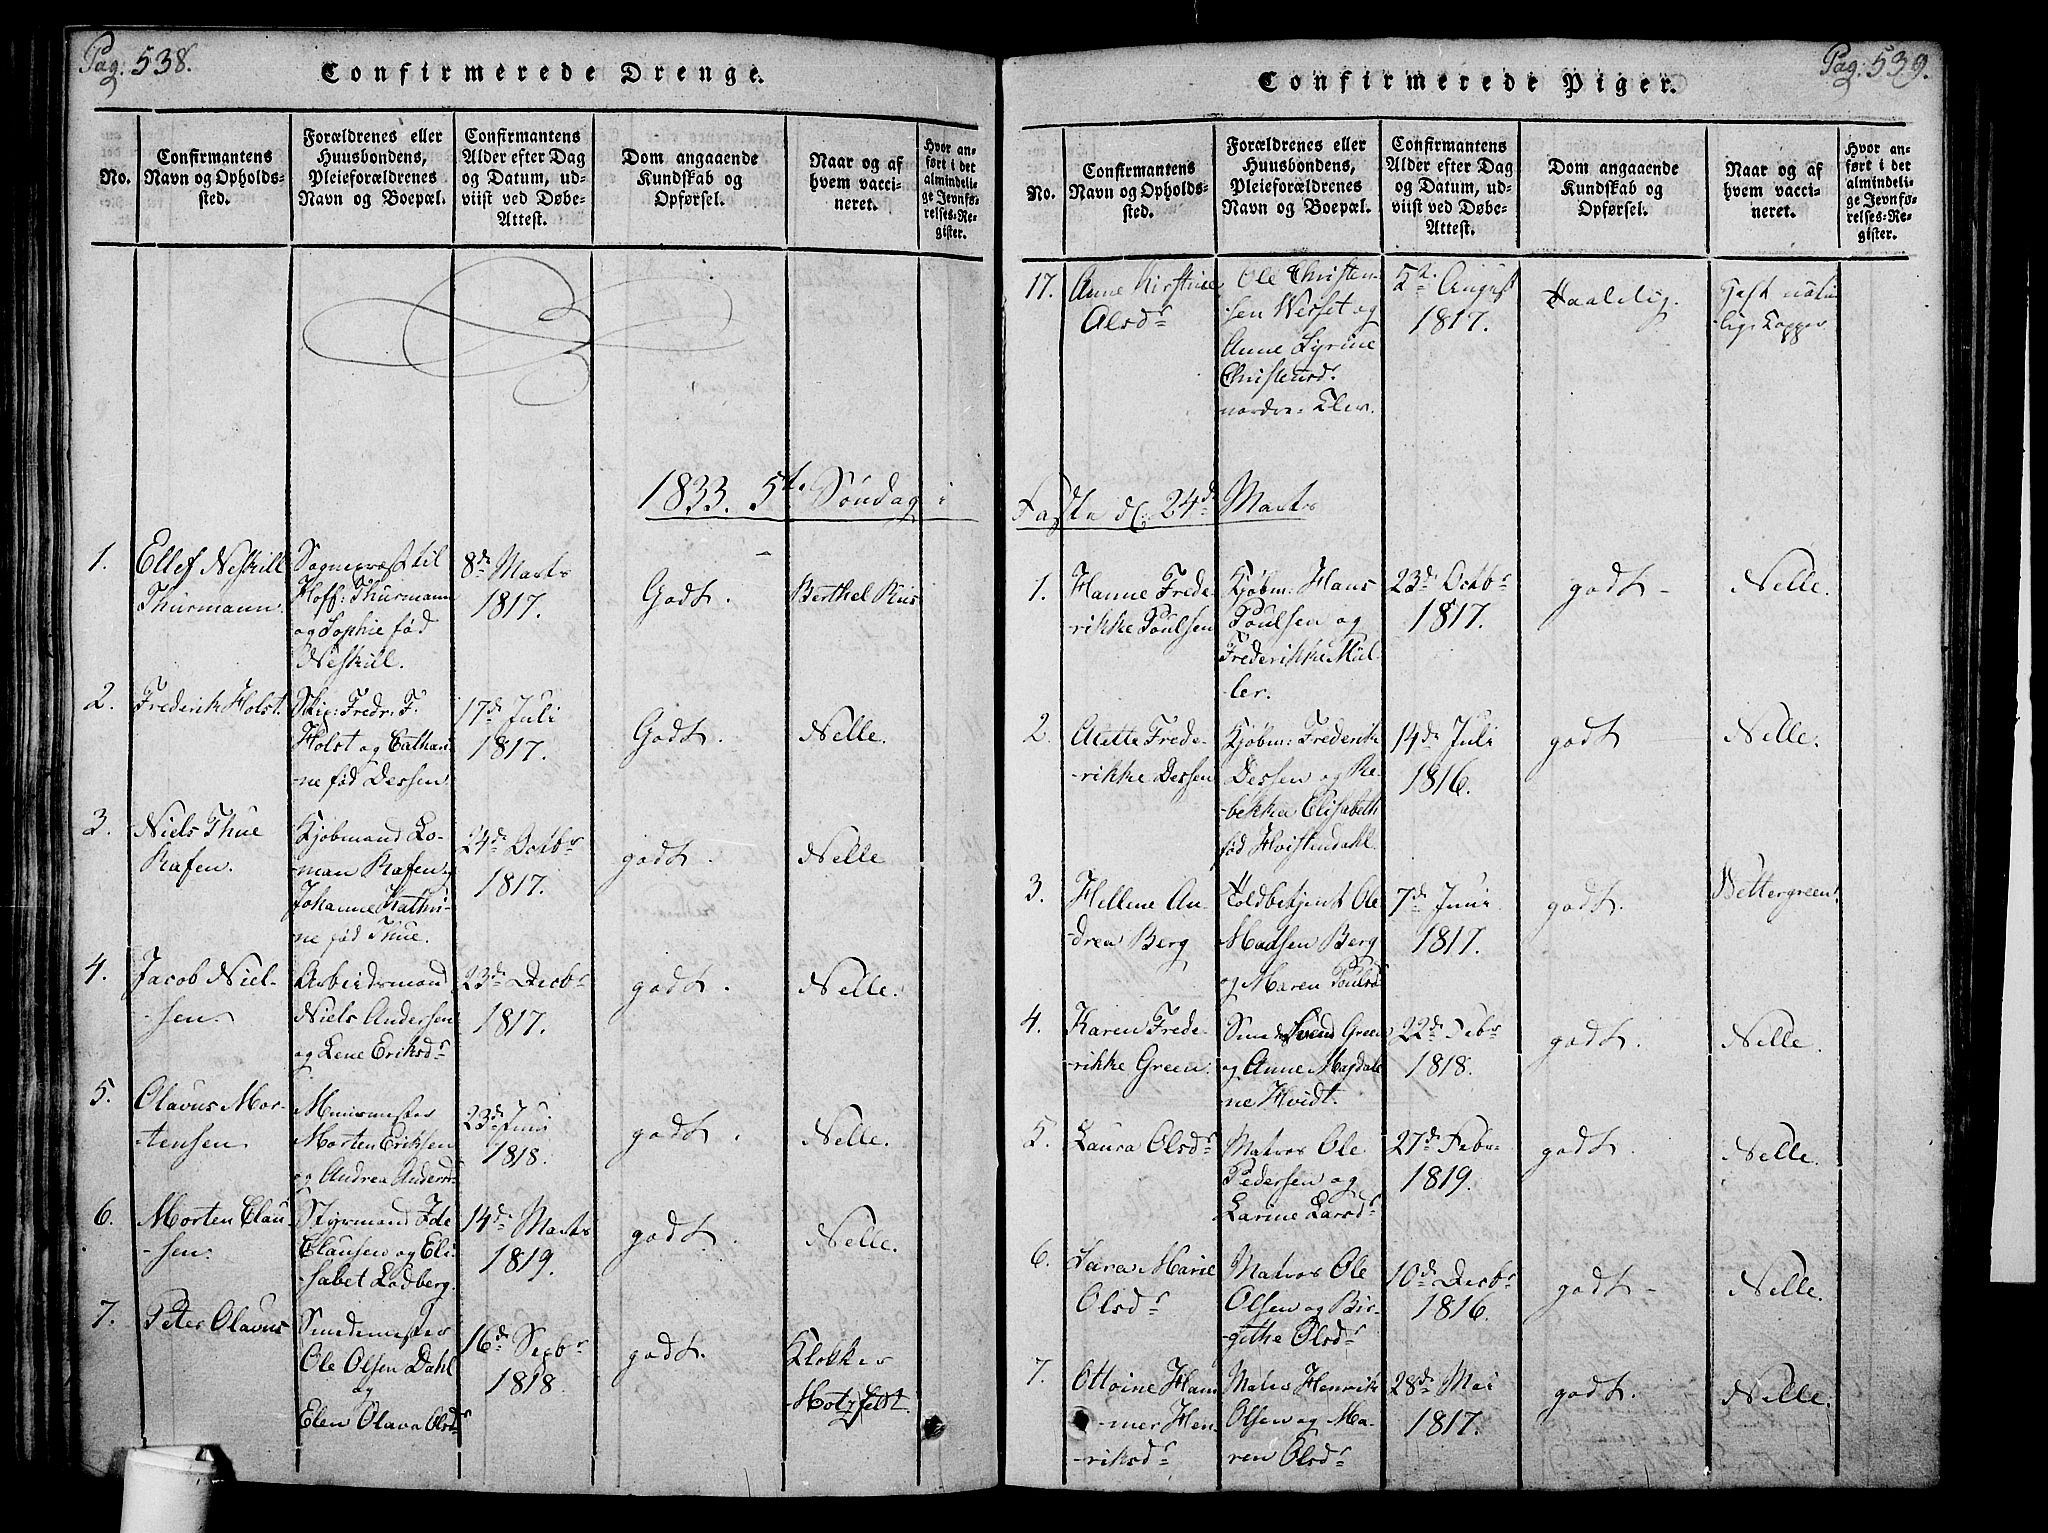 Pag. 538.
Confirmerede Drenge.
No.
Confirmantens
Navn og Opholds-
sted.
Forældrenes eller
Huusbondens,
Pleieforældrenes
Navn og Boepæl.
Confirmantens
Alder efter Dag
og Datum, ud-
viist ved Døbe-
Attest.
Dom angaaende
Kundskab og
Opførsel.
Naar og af
hvem vacci-
neret.
Hvor an-
ført i det
almindeli-
ge Jevnfø-
relses-Re-
gister.
1833. 5t. Søndag i
1.
Ellef Neskill
Thurmann.
Sognepræst til
Hoff: Thurmann
og Sophie fød
Neskill.
8de Marts
1817.
Godt.
Berthel Riis
2.
Frederik Holst.
Skip: Fredr: F.
Holst og Cathari-
ne fød Dessen
17de Juli
1817.
Godt.
Nelle.
3.
Niels Thue
Rafen.
Kjøbmand Lo-
man Rafen og
Johanne Kathri-
ne fød Thue.
24de Octbr
1817.
godt.
Nelle
4.
Jacob Niel-
-sen.
Arbeidsmand
Niels Andersen
og Lene Eriksdr
23de Decbr
1817.
godt.
Nelle.
5.
Olavus Mor-
tensen
Muurmester
Morten Eriksen
og Andrea Andersd
23de Juni
1818.
godt.
Nelle.
6.
Morten Clau-
-sen.
Styrmand Ide
Clausen og Eli-
sabet Lodberg.
14de Marts
1819.
godt.
Nelle.
7.
Peter Olavus
Smedemester
Ole Olsen Dahl
og
Elen Olava Olsdr
16de Sepbr
1818
godt.
Klokker
Motzfeldt.
Pag. 539.
Confirmerede Piger.
No.
Confirmantens
Navn og Opholds-
sted.
Forældrenes eller
Huusbondens,
Pleieforældrenes
Navn og Boepæl.
Confirmantens
Alder efter Dag
og Datum, ud-
viist ved Døbe-
Attest.
Dom angaaende
Kundskab og
Opførsel.
Naar og af
hvem vacci-
neret.
Hvor an-
ført i det
almindeli-
ge Jevnfø-
relses-Re-
gister.
17.
Anne Kirstine
Olsdr
Ole Christen-
sen Werset og
Anne Syrine
Christensd.
nordre Klev.
5te August
1817.
Taalelig.
havt natur
lige Kopper
Faste d: 24de Marts
1.
Hanne Frede-
rikke Poulsen
Kjøbm: Hans
Poulsen og
Frederikke Mül-
ler.
23de Octbr
1817.
godt -
Nelle.
2.
Alette Frede-
-rikke Dessen
Kjøbm: Frederik
Dessen og Re-
bekka Elisabeth
fød Hvistendahl.
14de Juli
1816.
godt
Nelle.
3.
Hellene An-
-drea Berg
Toldbetjent Ole
Madsen Berg
og Maren Poulsd
7de Juni
1817.
godt.
Wettergreen.
4.
Karen Frede-
-rikke Green.
Smed Svend Green
og Anne Magdale
ne Hvidt.
22de Febr
1818.
godt.
Nelle.
5.
Laura Olsdr
Matros Ole
Pedersen og
Larine Larsdr
27de Febr
1819.
godt.
Nelle.
6.
Sara Marie
Olsdr
Matros Ole
Olsen og Bir-
-githe Olsdr
10de Decbr
1816.
godt -
Nelle.
7.
Ottoine Ham
-mer Hen-
-riksdr
Matros Henrik
Olsen og Ma-
ren Olsdr
28de Mai
1817.
godt.
Nelle.